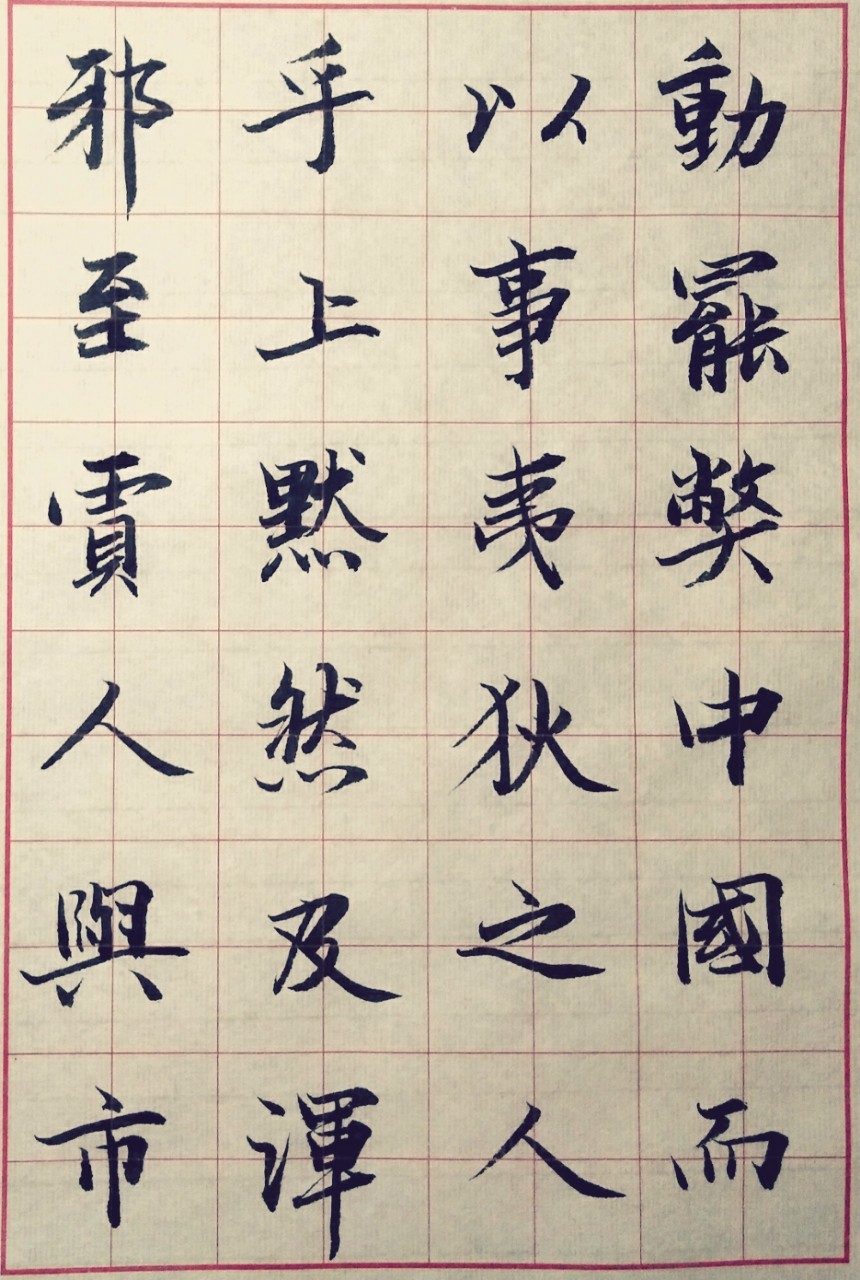 動罷弊中國而
以事夷狄之人
乎上默然及渾
邪至賈人與市